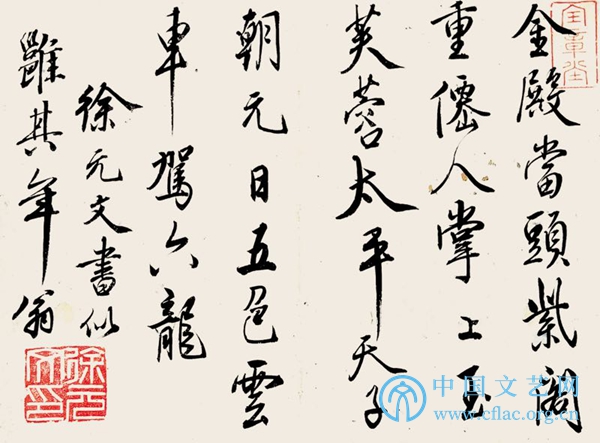 金殿當頭紫閣
重僊人掌上玉
芙蓉太平天子
朝元日五色雲
車駕六龍
徐元文書似
其年翁
徐元文印
中国文艺网
www.cflac.org.cn